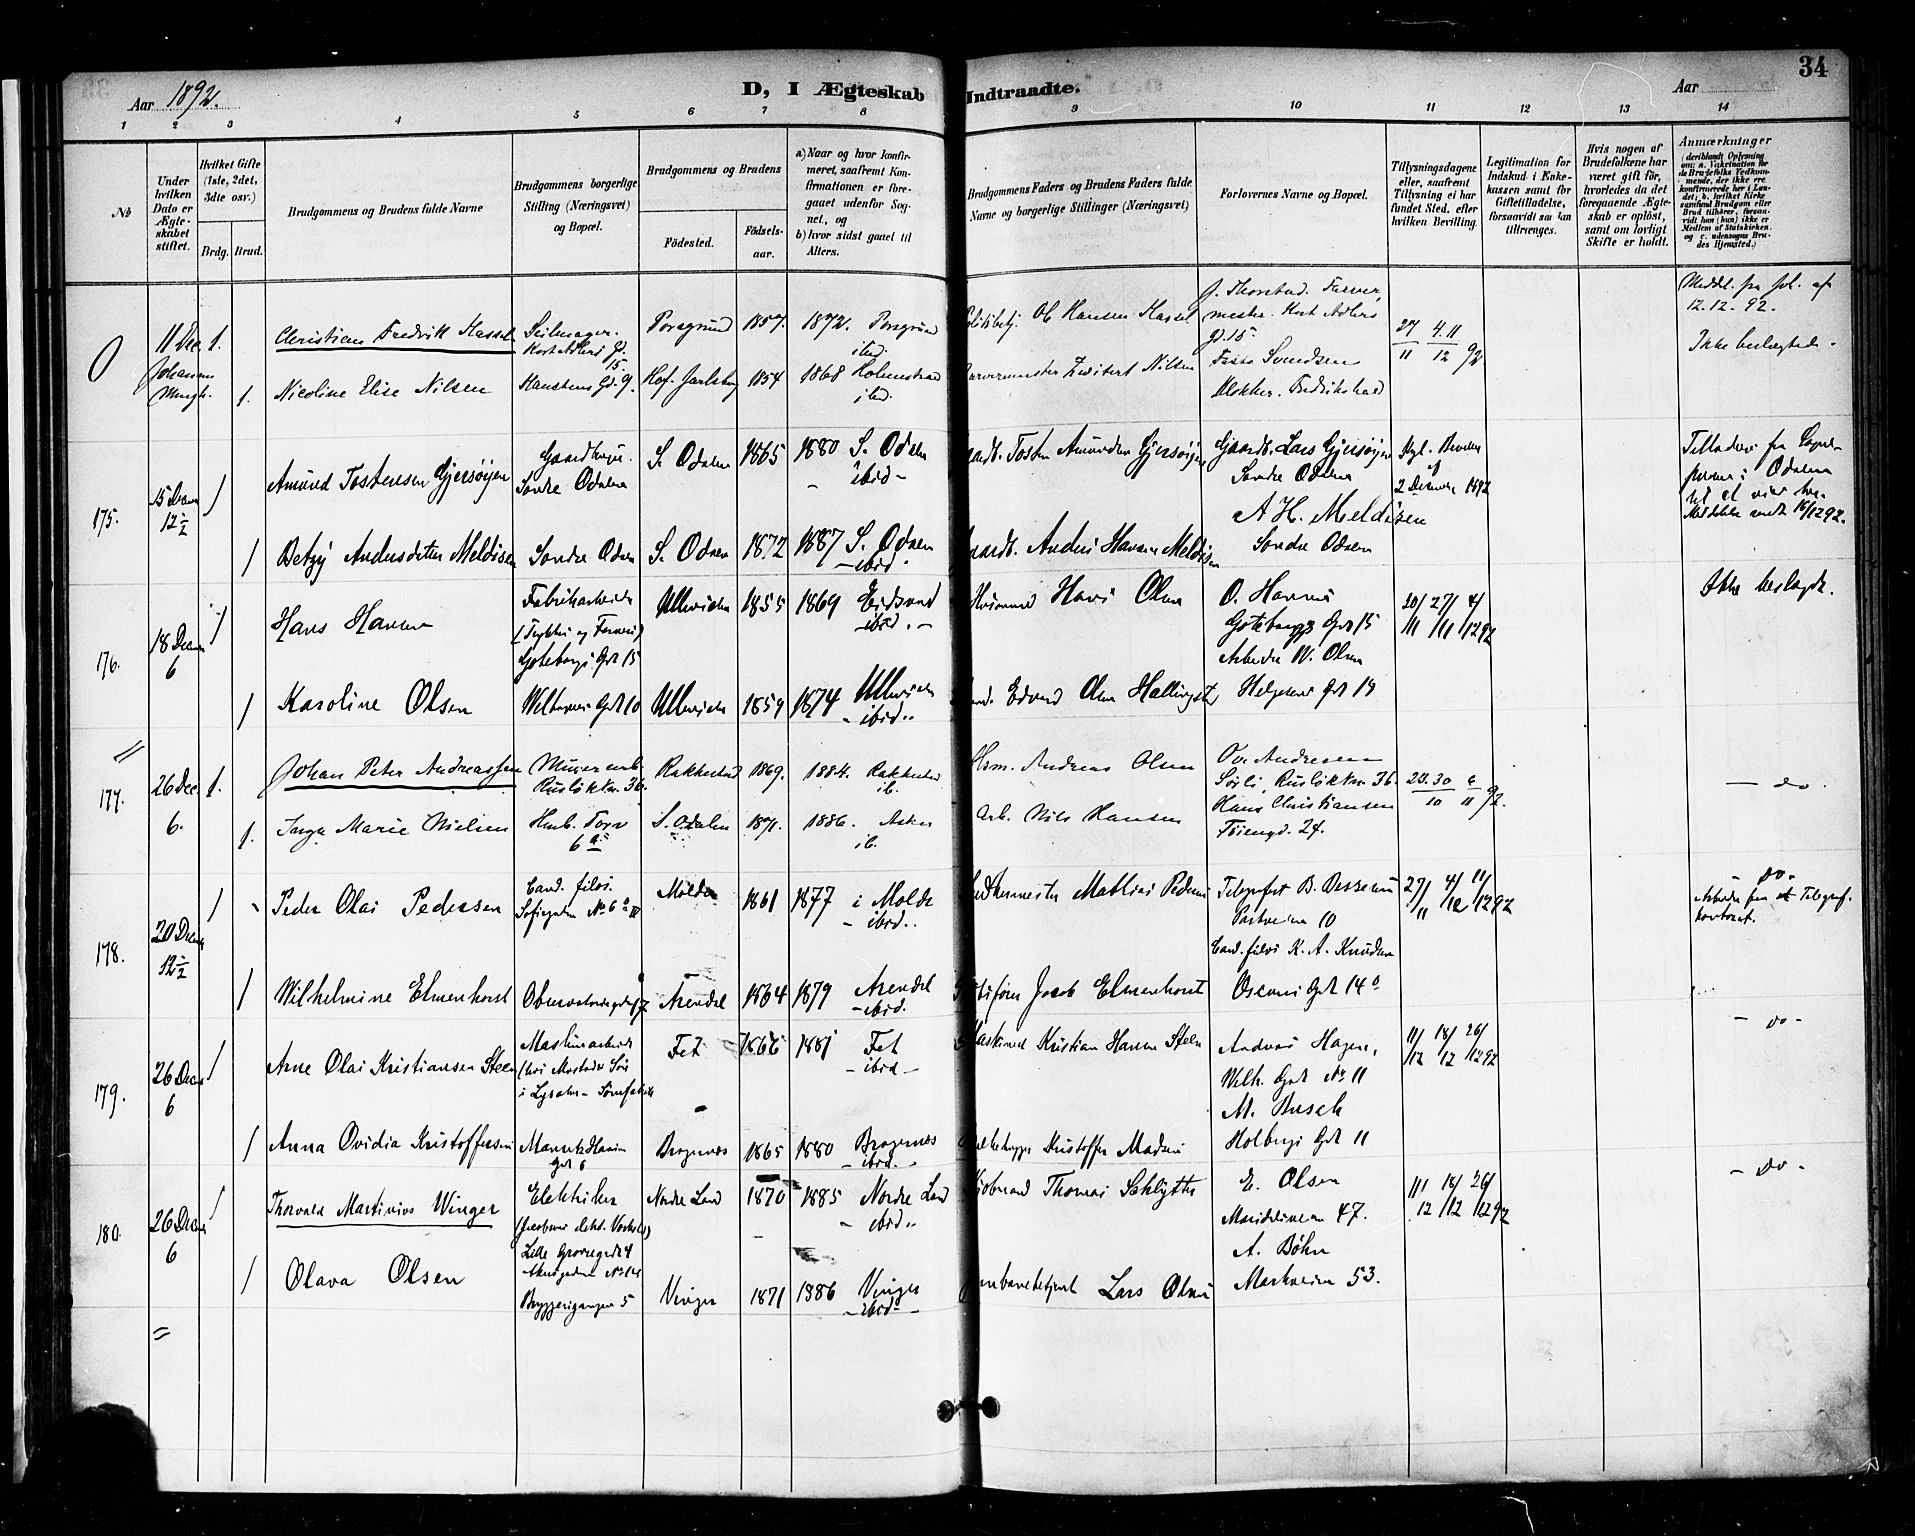 34
Aar 1892.
D, I Ægteskab Indtraadte.
Aar
1 2 3 4 5 6 7 8 9 10 11 12 13 14
No
Under hvilken Dato er Ægteskabet stiftet.
Hvilket Gifte (1ste, 2det, 3dte osv.)
Brdg. Brud.
Brudgommens og Brudens fulde Navne
Brudgommens borgerlige Stilling (Næringsvei) og Bopæl.
Brudgommens og Brudens
Födested.
Födselsaar.
a) Naar og hvor konfirmeret, saafremt Konfirmationen er foregaaet udenfor Sognet, og
b) hvor sidst gaaet til Alters.
Brudgommens Faders og Brudens Faders fulde Navne og borgerlige Stillinger (Næringsvei)
Forlovernes Navne og Bopæl.
Tillysningsdagene eller, saafremt Tillysning ei har fundet Sted, efter hvilken Bevilling.
Legitimation for Indskud i Enkekassen samt for Giftetilladelse, forsaavidt saa kan tiltrænges.
Hvis nogen af Brudefolkene har været gift för, hvorledes da det foregaaende Ægteskab er oplöst, samt om lovligt Skifte er holdt.
Anmærkninger
(deriblandt Oplysning om: a. Vakcination for de Brudefolks Vedkommende, der ikke ere konfirmerede her i Landet; b. hvilket Kirkesamfund Brudgom eller Brud tilhörer, forsaavidt han (hun) ikke er Medlem af Statskirken, og c. udensogns Brudes Hjemsted.)
0
11 Dec. 1.
Christian Fredrik Kassel
Seilmager. Kort Adlers G. 15
Porsgrund 1857. 1872. Porsgrund ibid.
Ole Hansen Kassel
J. Thorstad. Farvermester. Kort Adlers G. 15.
27/11 4.11/12 92
Meddel. fra Joh. af 12.12.92.
Ikke beslægtede.
Johannes Mengh.
1. Nicoline Elise Nilsen
Hanstens Gd. 9.
Hof. Jarlsberg 1854 1868 Holmestrand ibid.
Farvermester Nilsen
Svendsen Klokker. Fredrikshald
175.
15 Decem 12½
1 Amund Tostensen Gjersøyen
Gaardbruger Søndre Odalen
S. Odalen 1865 1880 S. Odalen - ibid -
Gaardb. Tosten Amundsen Gjersøyen
Gaardb. Lars Gjersøyen Søndre Odalen
Kgl. Bevilln af 2 December 1892
1 Betzy Andersdatter Meldisen
Søndre Odalen
S. Odalen 1872 1887 S. Odalen - ibid -
Gaardb. Anders Hansen Meldisen
A. H. Meldisen
Søndre Odalen
176.
18 Decem 6
1 Hans Hansen
Fabrikarbeider
Göteborgs Gd. 15
Ullensaker 1855 1869 Eidsvold - ibid. -
Husmand Hans Olsen
O. Hansen
Göteborgs Gd 15
Arbeider W. Olsen
20/11 27/11 4/12 92
Ikke beslægt.
1 Karoline Olsen
Welhavens Gd 10
Ullensaker 1859 1874 Ullensaker - ibid..
Edvard Olsen
Helgesens Gd 19
177.
26 Dec. 6.
1. Johan Peter Andreassen
Murerarb. Ruslökkv. 36.
Rakkestad 1869. 1884. Rakkestad ib.
Hsm. Andreas Olsen
Ove Andresen
Sørli, Ruslökkv. 36.
Hans Christiansen
23.30/10 6/11 92.
- do -
1. Inga Marie Nielsen
Torv 6a
S. Odalen 1871. 1886. Asker ib.
Arb. Nils Hansen
24.
178.
20 Decem 12½
1 Peder Olai Pedersen
Cand. filos. Sofiegaden No 6
Molde 1861 1877 i Molde - ibid..
Mathias Pedersen
Telegrafist B. Bessesen
Parkveien 10
Cand. filos K. A. Knudsen
27/11 4/12 11/12 92
- do -
Arbeider fra Telegrafkontoret.
1 Wilhelmine Elmenhorst
Observatoriegd. 7
Arendal 1864 1879 Arendal - ibid.
Skibsfører Jacob Elmenhorst
Oscars Gd. 14 b
179.
26 Decem 6
1 Arne Olai Kristiansen Steen
Maskinarbeider i Lysaker
Fet 1866 1881 Fet - ibid -
Maskinmd Kristian Hansen Steen
Andreas Hagen,
Welh. Gd No 11
M. Busch
11/12 18/12 26/12 92
- do -
1 Anna Ovidia Kristoffersen
Mauritz Hansens Gd 6
Bragernæs 1865 1880 Bragernæs - ibid. -
Kristoffer Madsen
Holbergs Gd 11
180.
26 Decem 6
1 Thorvald Martinius Winger
Elektriker
(Jacobsens elekt. Værksted)
Lille Grændsegade 4
Nordre Land 1870 1885 Nordre Land - ibid..
Thomas Schlytter
E. Olsen
Maridalsveien 47.
A. Böhn
11/12 18/12 26/12 92
- do -
1 Olava Olsen
Bryggerigangen 5
Vinger 1871 1886 Vinger - ibid -
Jernbanebetjent Lars Olsen
Markveien 53.